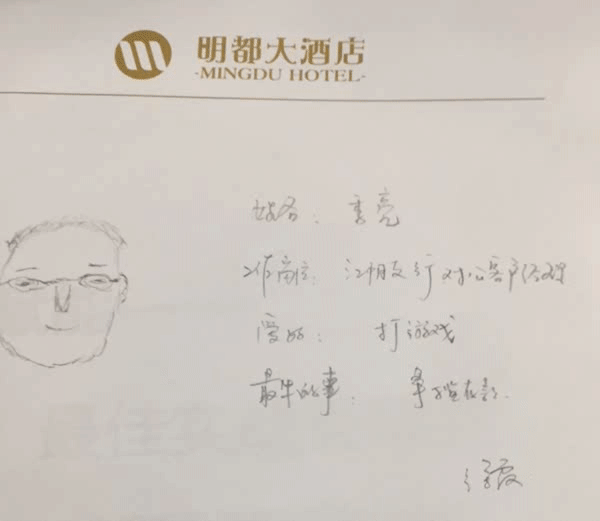 明都大酒店
·MINGDU HOTEL·
姓名: 季亮
工作岗位: 江阴支行对公客户经理
爱好: 打游戏
最牛的事: